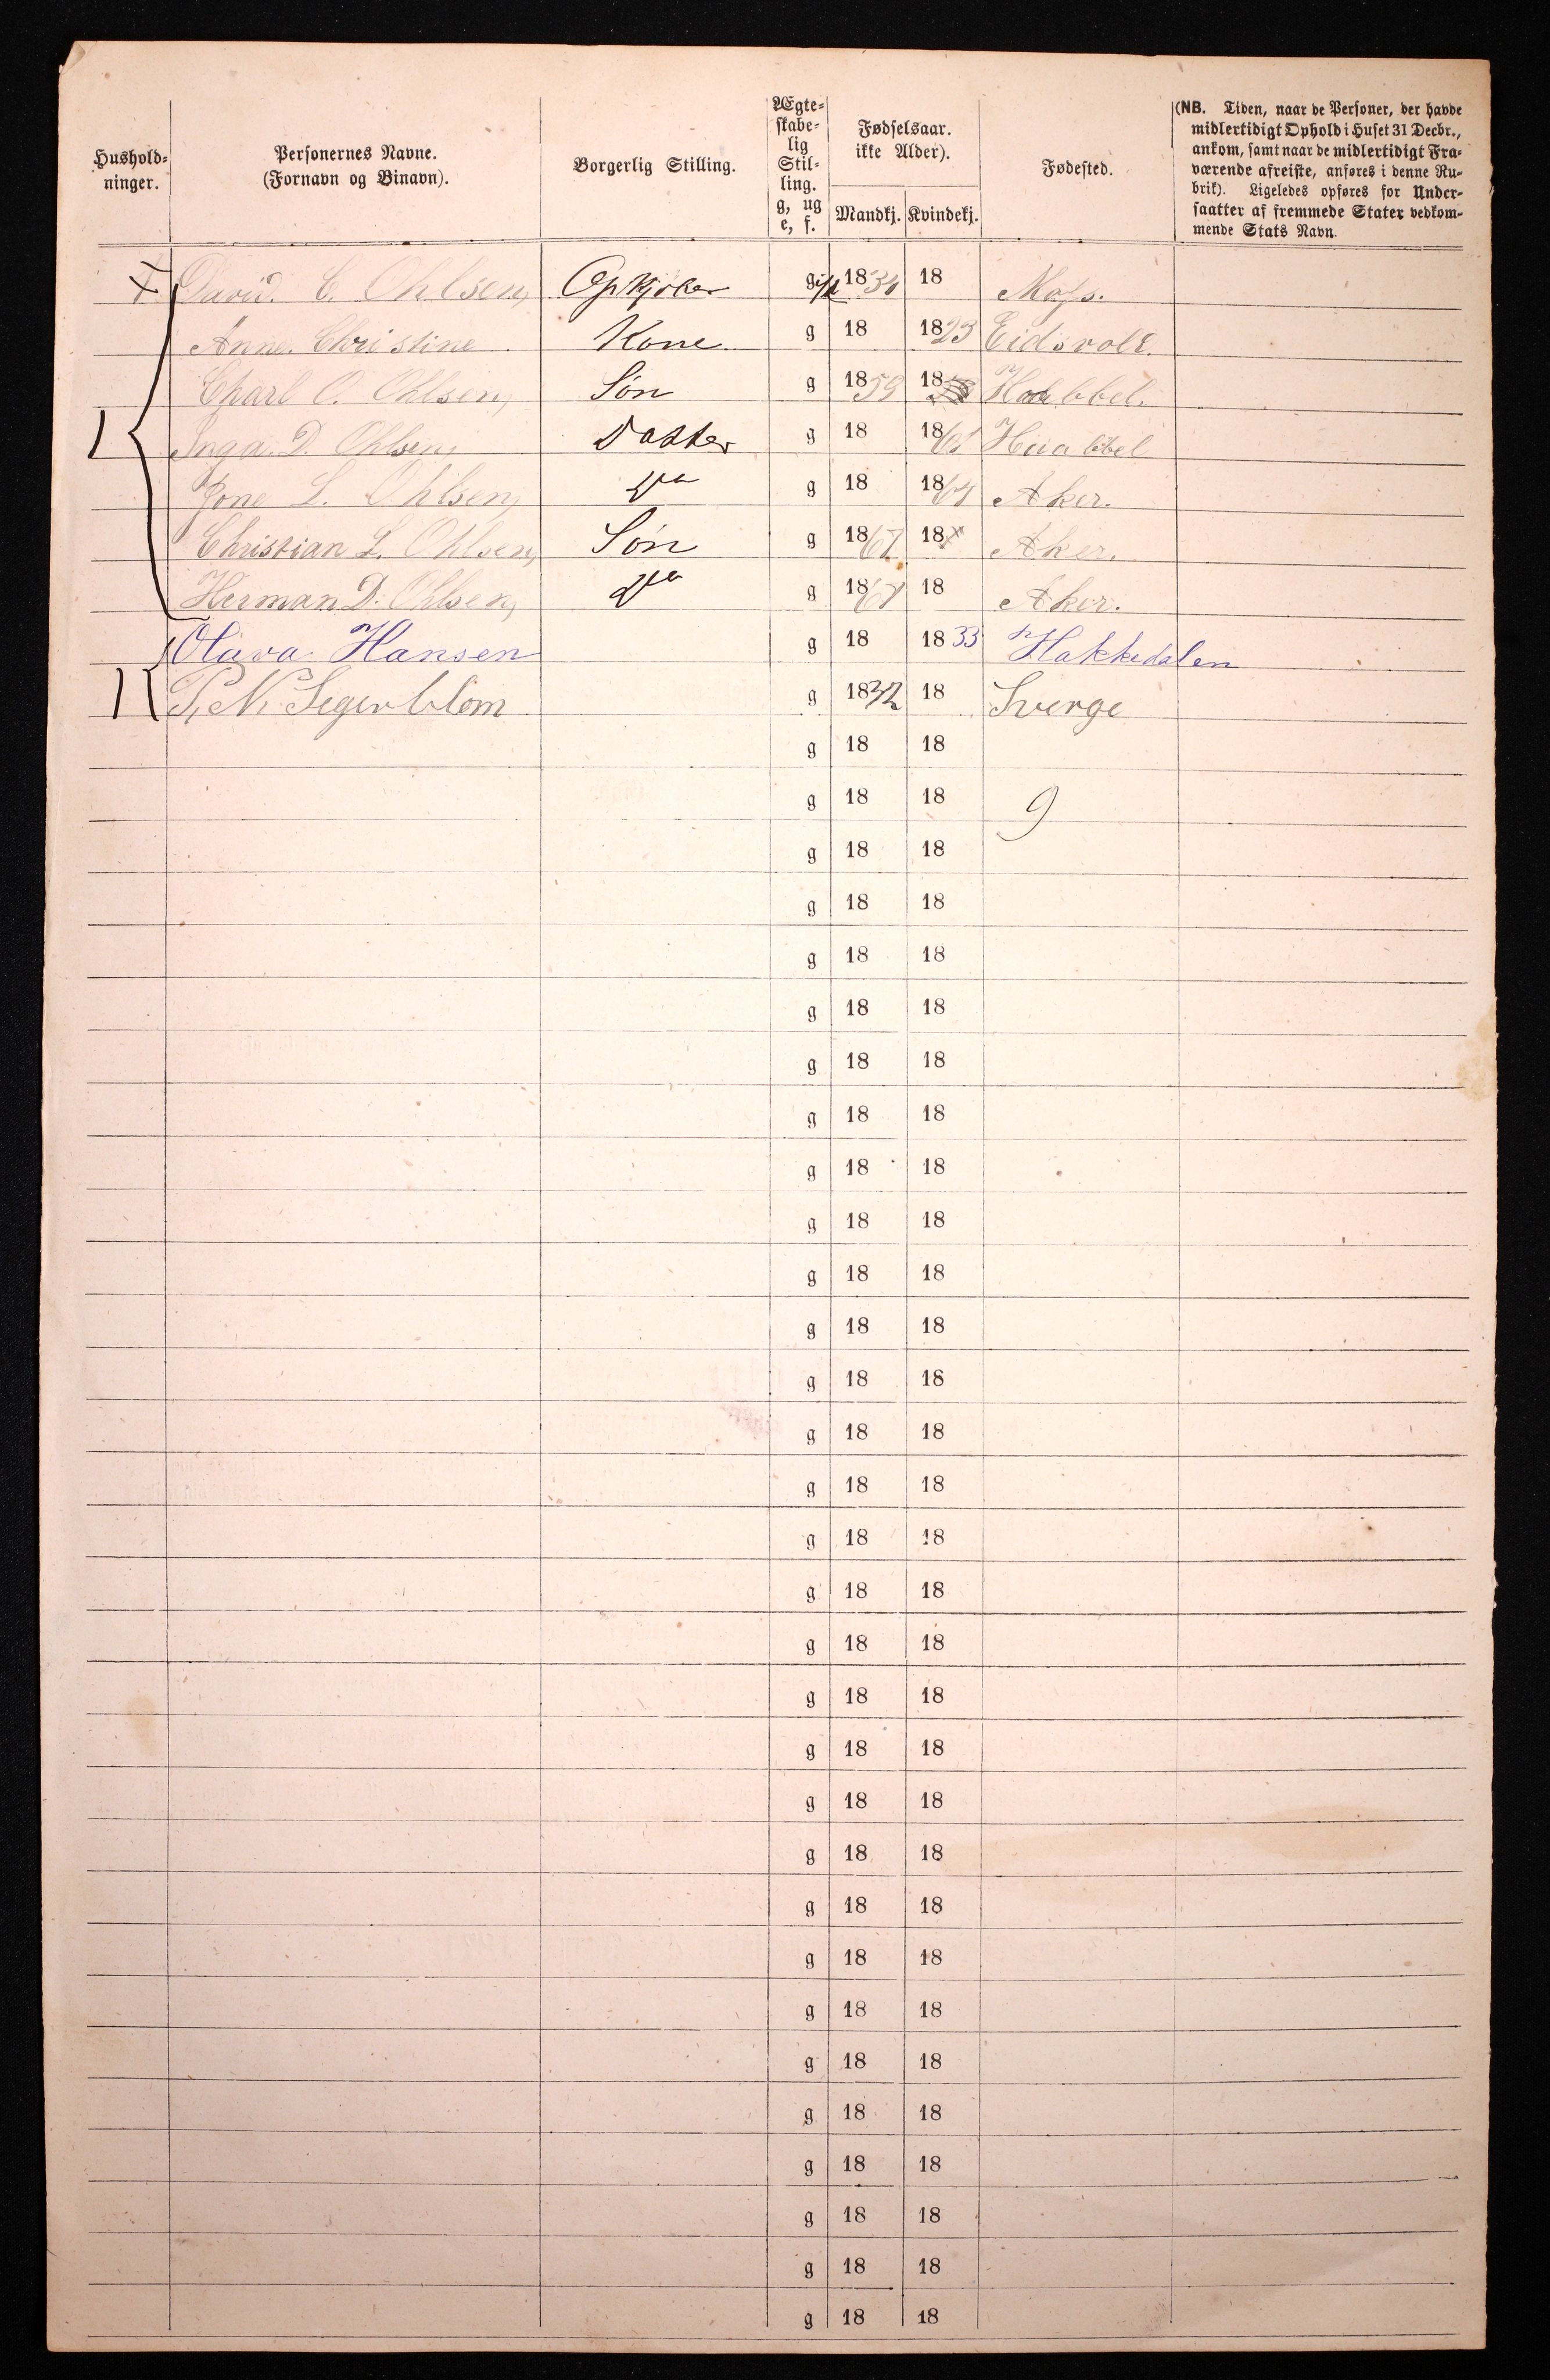 Hushold-
ninger.
Personernes Navne.
(Fornavn og Binavn).
Borgerlig Stilling.
Ægte-
skabe-
lig
Stil-
ling.
g, ug
e, f.
Fødselsaar.
ikke Alder).
Mandkj. Kvindekj.
Fødested.
(NB. Tiden, naar de Personer, der havde
midlertidigt Ophold i Huset 31 Decbr.,
ankom, samt naar de midlertidigt Fra-
værende afreiste, anføres i denne Ru-
brik). Ligeledes opføres for Under-
saatter af fremmede Stater vedkom-
mende Stats Navn.
David. C. Ohlsen, Opkjøber g 1834 18 Moss.
Anne. Christine Kone g 18 1823 Eidsvoll.
Charl O. Ohlsen, Søn g 1859 18 Haabbel.
1 Inga. D. Ohlsen, Datter g 18 1861 Haabbel
Jone L. Ohlsen, do g 18 1864 Aker.
Christian L. Ohlsen, Søn g 1867 18 Aker.
Herman D. Ohlsen, do g 18 18 Aker.
Olava Hansen g 18 1833 Hakkedalen
1 P. N. Segerblom g 1832 18 Sverge
g 18 18
g 18 18 9
g 18 18
g 18 18
g 18 18
g 18 18
g 18 18
g 18 18
g 18 18
g 18 18
g 18 18
g 18 18
g 18 18
g 18 18
g 18 18
g 18 18
g 18 18
g 18 18
g 18 18
g 18 18
g 18 18
g 18 18
g 18 18
g 18 18
g 18 18
g 18 18
g 18 18
g 18 18
g 18 18
g 18 18
g 18 18